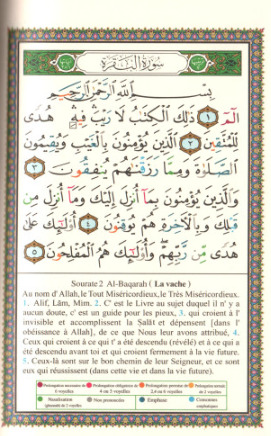 سورة البقرة
بسم الله الرحمن الرحيم
الٓمٓ ١ ذَٰلِكَ ٱلْكِتَٰبُ لَا رَيْبَ فِيهِ هُدًى
لِّلْمُتَّقِينَ ٢ ٱلَّذِينَ يُؤْمِنُونَ بِٱلْغَيْبِ وَيُقِيمُونَ
ٱلصَّلَوٰةَ وَمِمَّا رَزَقْنَٰهُمْ يُنفِقُونَ ٣
وَٱلَّذِينَ يُؤْمِنُونَ بِمَآ أُنزِلَ إِلَيْكَ وَمَآ أُنزِلَ مِن
قَبْلِكَ وَبِٱلْءَاخِرَةِ هُمْ يُوقِنُونَ ٤ أُو۟لَٰٓئِكَ عَلَىٰ
هُدًى مِّن رَّبِّهِمْ وَأُو۟لَٰٓئِكَ هُمُ ٱلْمُفْلِحُونَ ٥
Sourate 2 Al-Baqarah ( La vache )
Au nom d'Allah, le Tout Miséricordieux, le Très Miséricordieux.
1. Alif, Lâm, Mim. 2. C' est le Livre au sujet duquel il n' y a
aucun doute, c' est un guide pour les pieux, 3. qui croient à l'
invisible et accomplissent la Salât et dépensent [dans l'
obéissance à Allah], de ce que Nous leur avons attribué, 4.
Ceux qui croient à ce qui t' a été descendu (révélé) et à ce qui a
été descendu avant toi et qui croient fermement à la vie future.
5. Ceux-là sont sur le bon chemin de leur Seigneur, et ce sont
eux qui réussissent (dans cette vie et dans la vie future).
Prolongation nécessaire de 6 voyelles
Prolongation obligatoire de 4 ou 5 voyelles
Prolongation permise de 2,4 ou 6 voyelles
Prolongation normale de 2 voyelles
Nasalisation
Non prononcée
Emphase